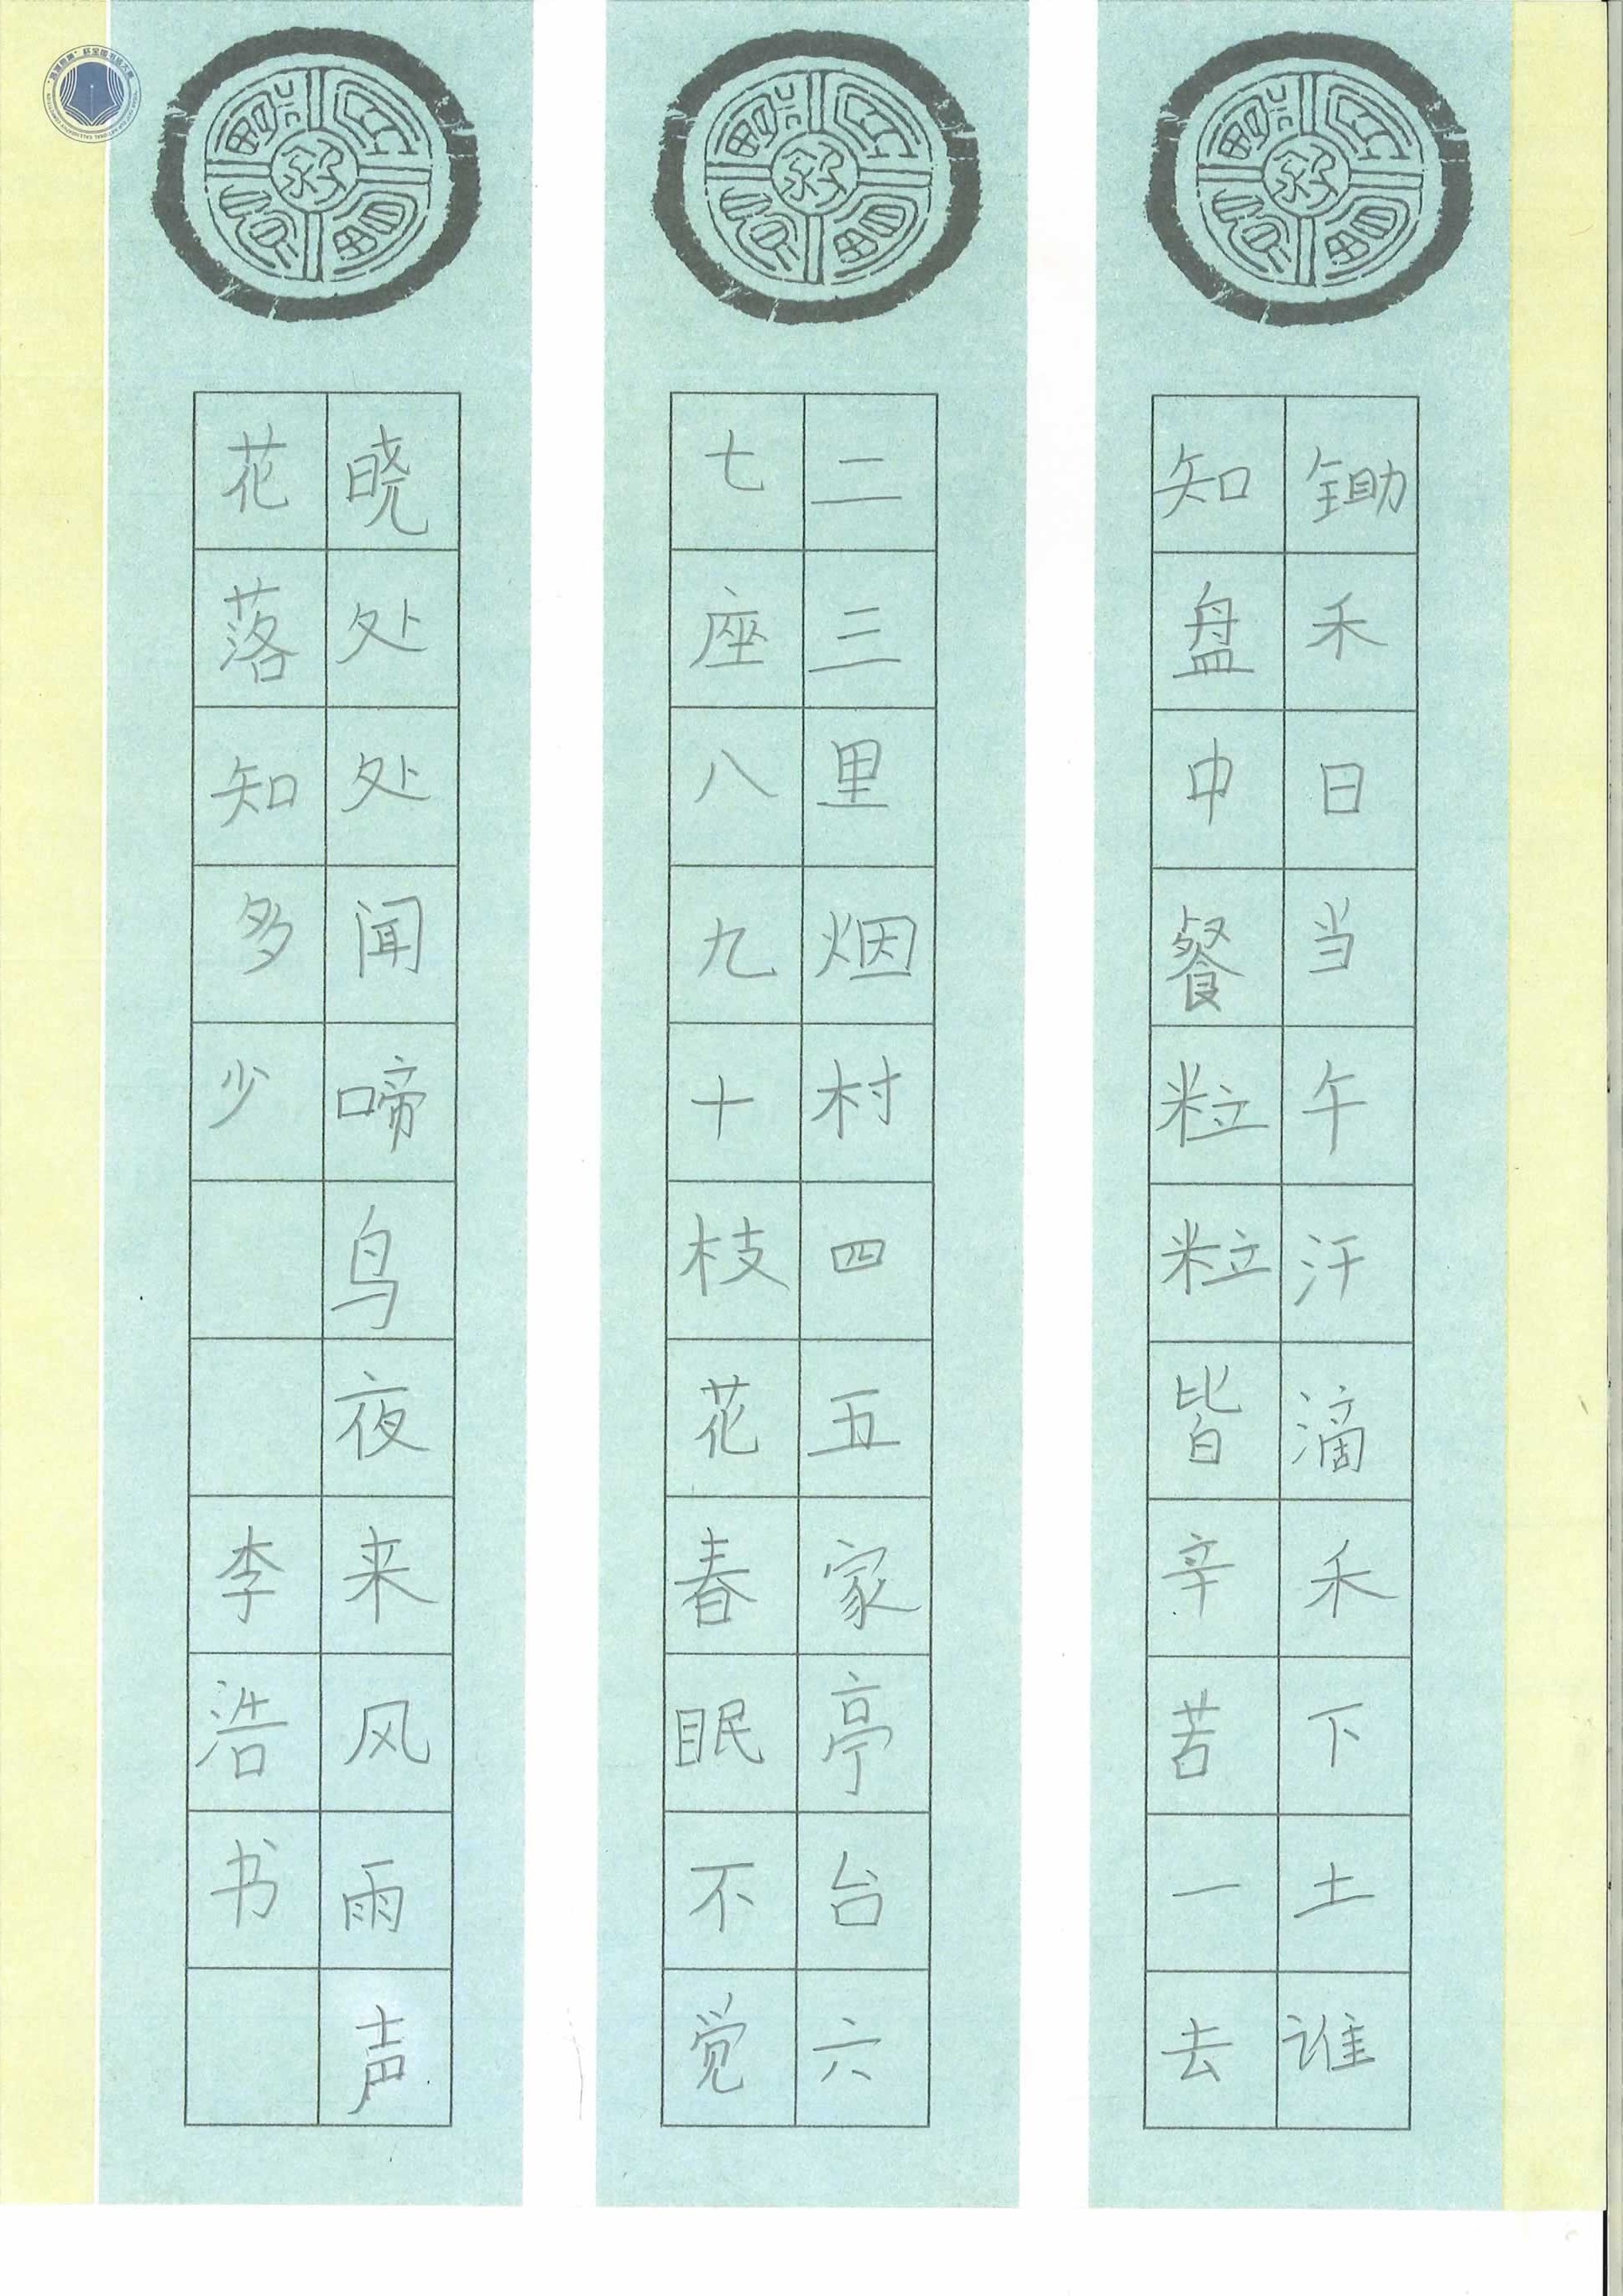 锄禾日当午汗滴禾下土谁
知盘中餐粒粒皆辛苦一去
二三里烟村四五家亭台六
七座八九十枝花春眠不觉
晓处处闻啼鸟夜来风雨声
花落知多少 李浩书